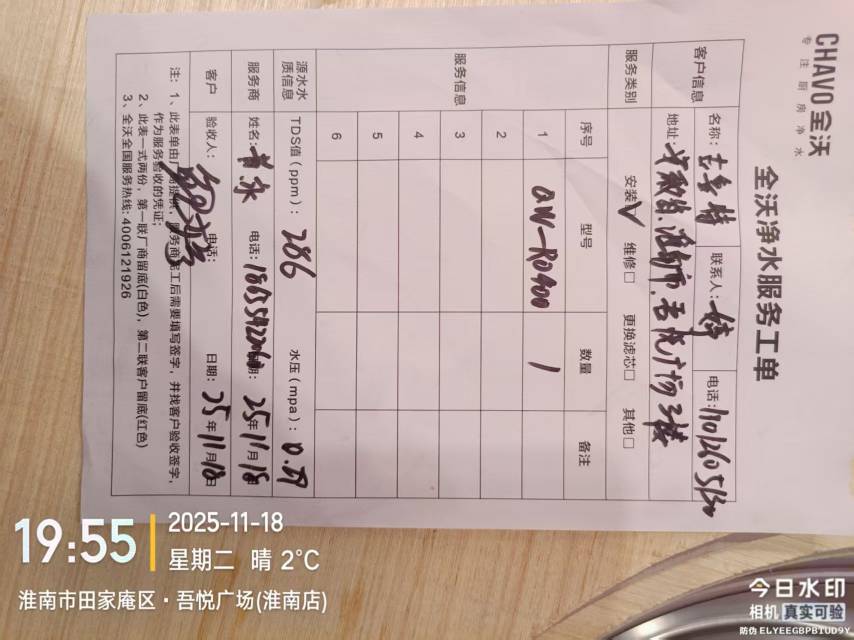 CHAVO 全沃
专注厨房净水
全沃净水服务工单
客户信息 名称: 联系人: 电话:
地址: 安徽省淮南市吾悦广场3楼
服务类别 安装☑ 维修□ 更换滤芯□ 其他□
服务信息 序号 型号 数量 备注
1 QW-RO400 1
2
3
4
5
6
源水水质信息 TDS值(ppm): 286 水压(mpa):
服务商 姓名: 电话: 日期: 25年11月18
客户 验收人: 电话: 日期: 25年11月18日
注: 1、此表单由厂商提供,服务商完工后需要填写签字,并找客户验收签字,
作为服务验收的凭证;
2、此表一式两份,第一联厂商留底(白色),第二联客户留底(红色)
3、全沃全国服务热线: 4006121926
19:55
2025-11-18
星期二 晴 2°C
淮南市田家庵区·吾悦广场(淮南店)
今日水印
相机 真实可验
防伪 ELYEEGBPBTUD9Y